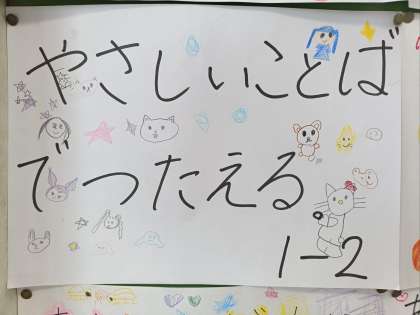 やさしいことば
でつたえる
1-2